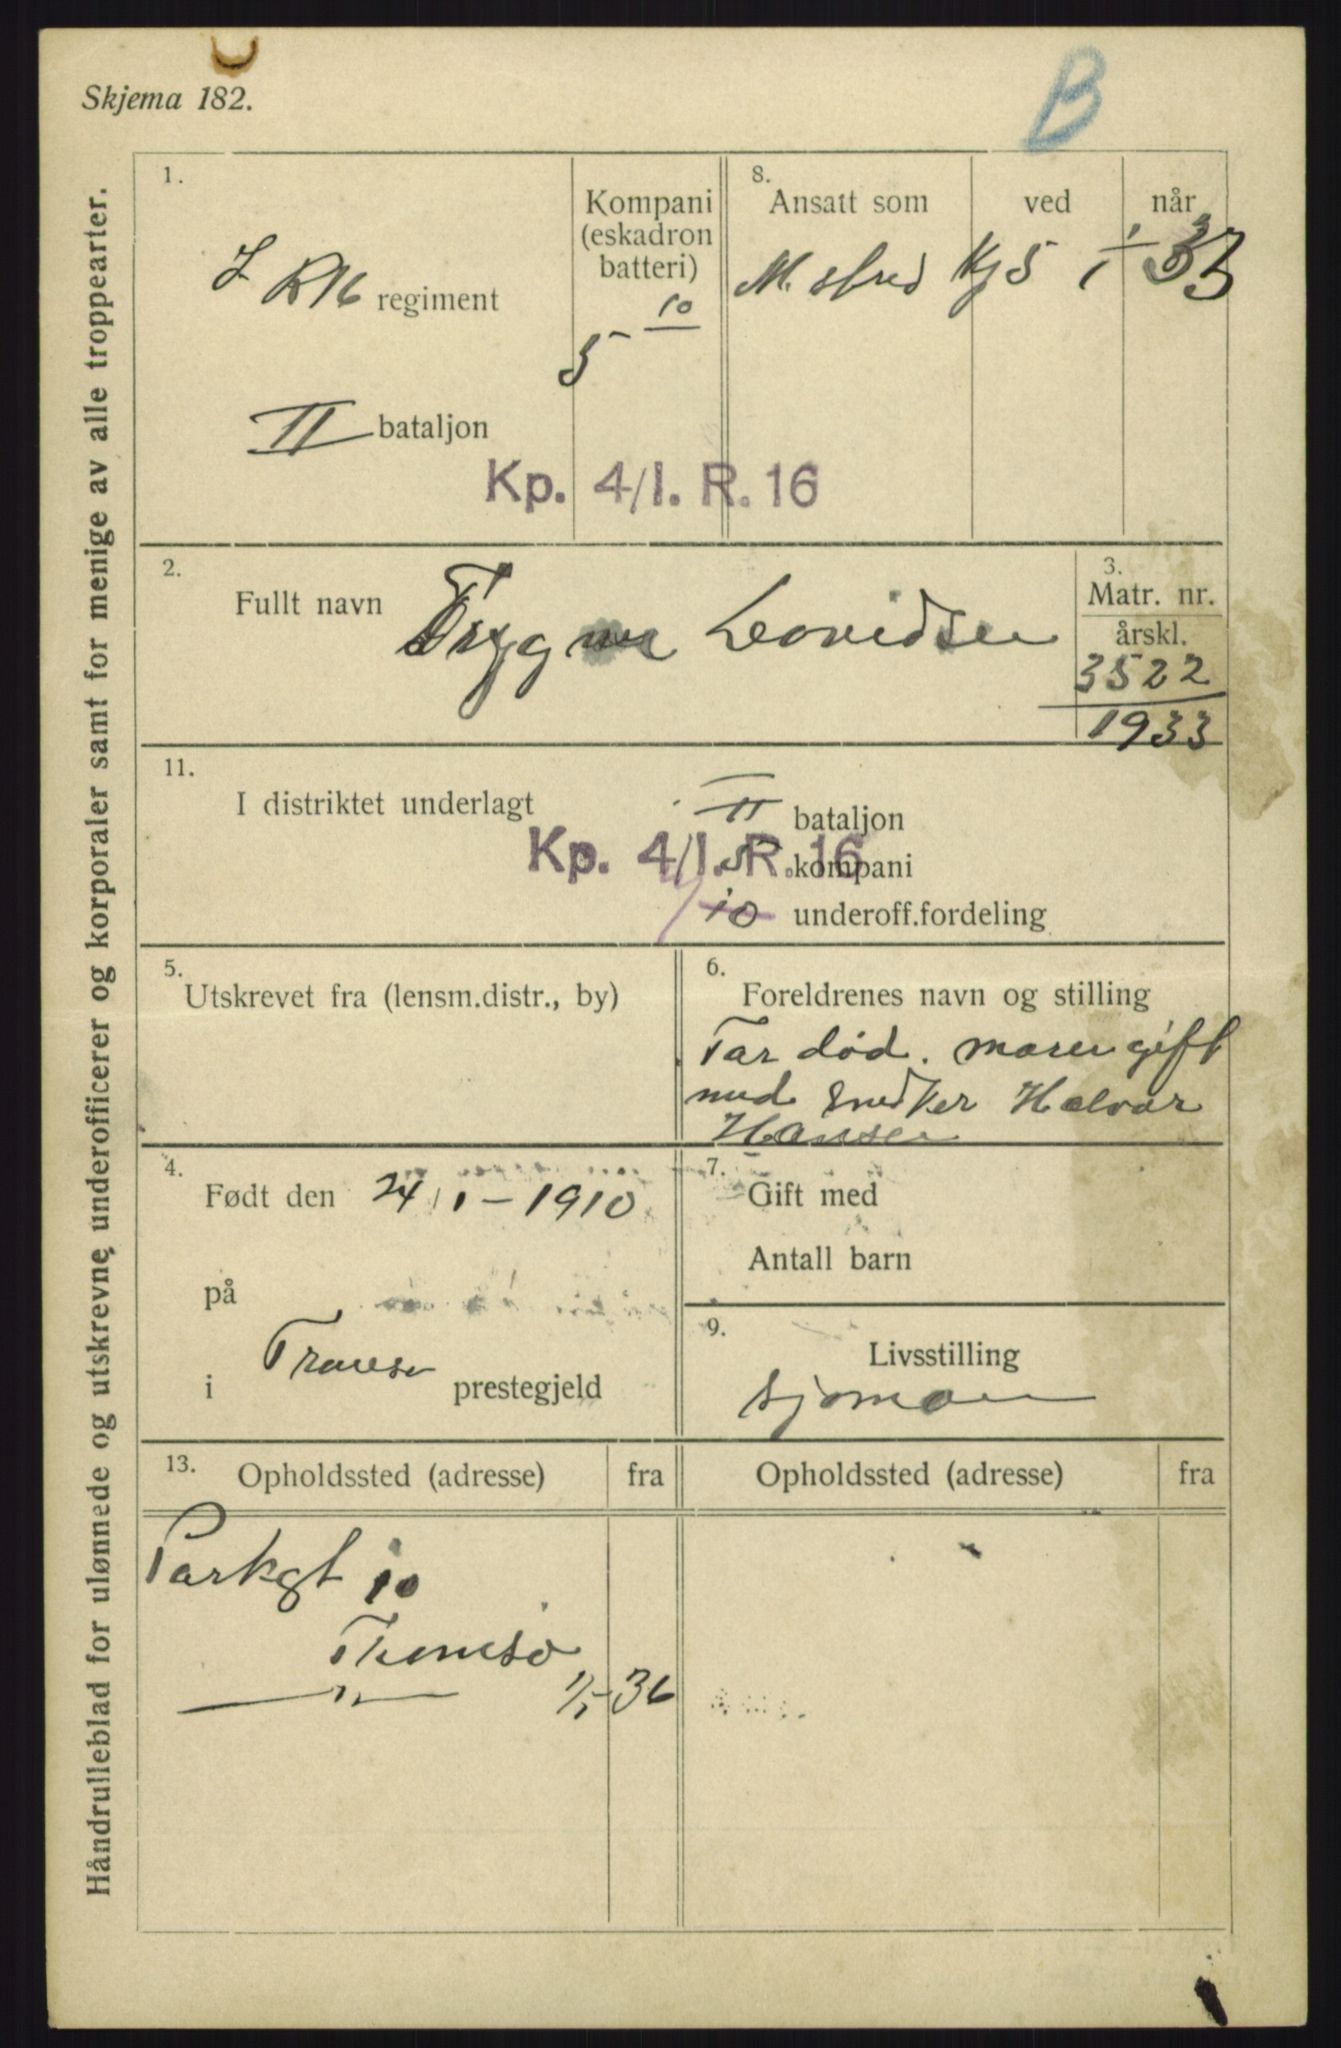 Skjema 182.
B
Håndrulleblad for ulønnede og utskrevne underofficerer og korporaler samt for menige av alle troppearter.
1.
I R16 regiment
Kompani
(eskadron
batteri)
10
5
II bataljon
Kp. 4/I. R. 16
8.
Ansatt som
ved
når
M. sfred Kp 5 1/1 33
2.
Fullt navn Trygve Davidsen
3.
Matr. nr.
årskl.
3522
1933
11.
I distriktet underlagt
II bataljon
5 kompani
Kp. 4/I. R. 16
10 underoff.fordeling
5.
Utskrevet fra (lensm.distr., by)
6.
Foreldrenes navn og stilling
Far død. moren gift
med snedker Halvar
Hansen
4.
Født den 24/1-1910
på
i Tromsø prestegjeld
7.
Gift med
Antall barn
9.
Livsstilling
sjøman
13.
Opholdssted (adresse)
fra
Opholdssted (adresse)
fra
Parkgt 10
Tromsø
—"— 1/1-36